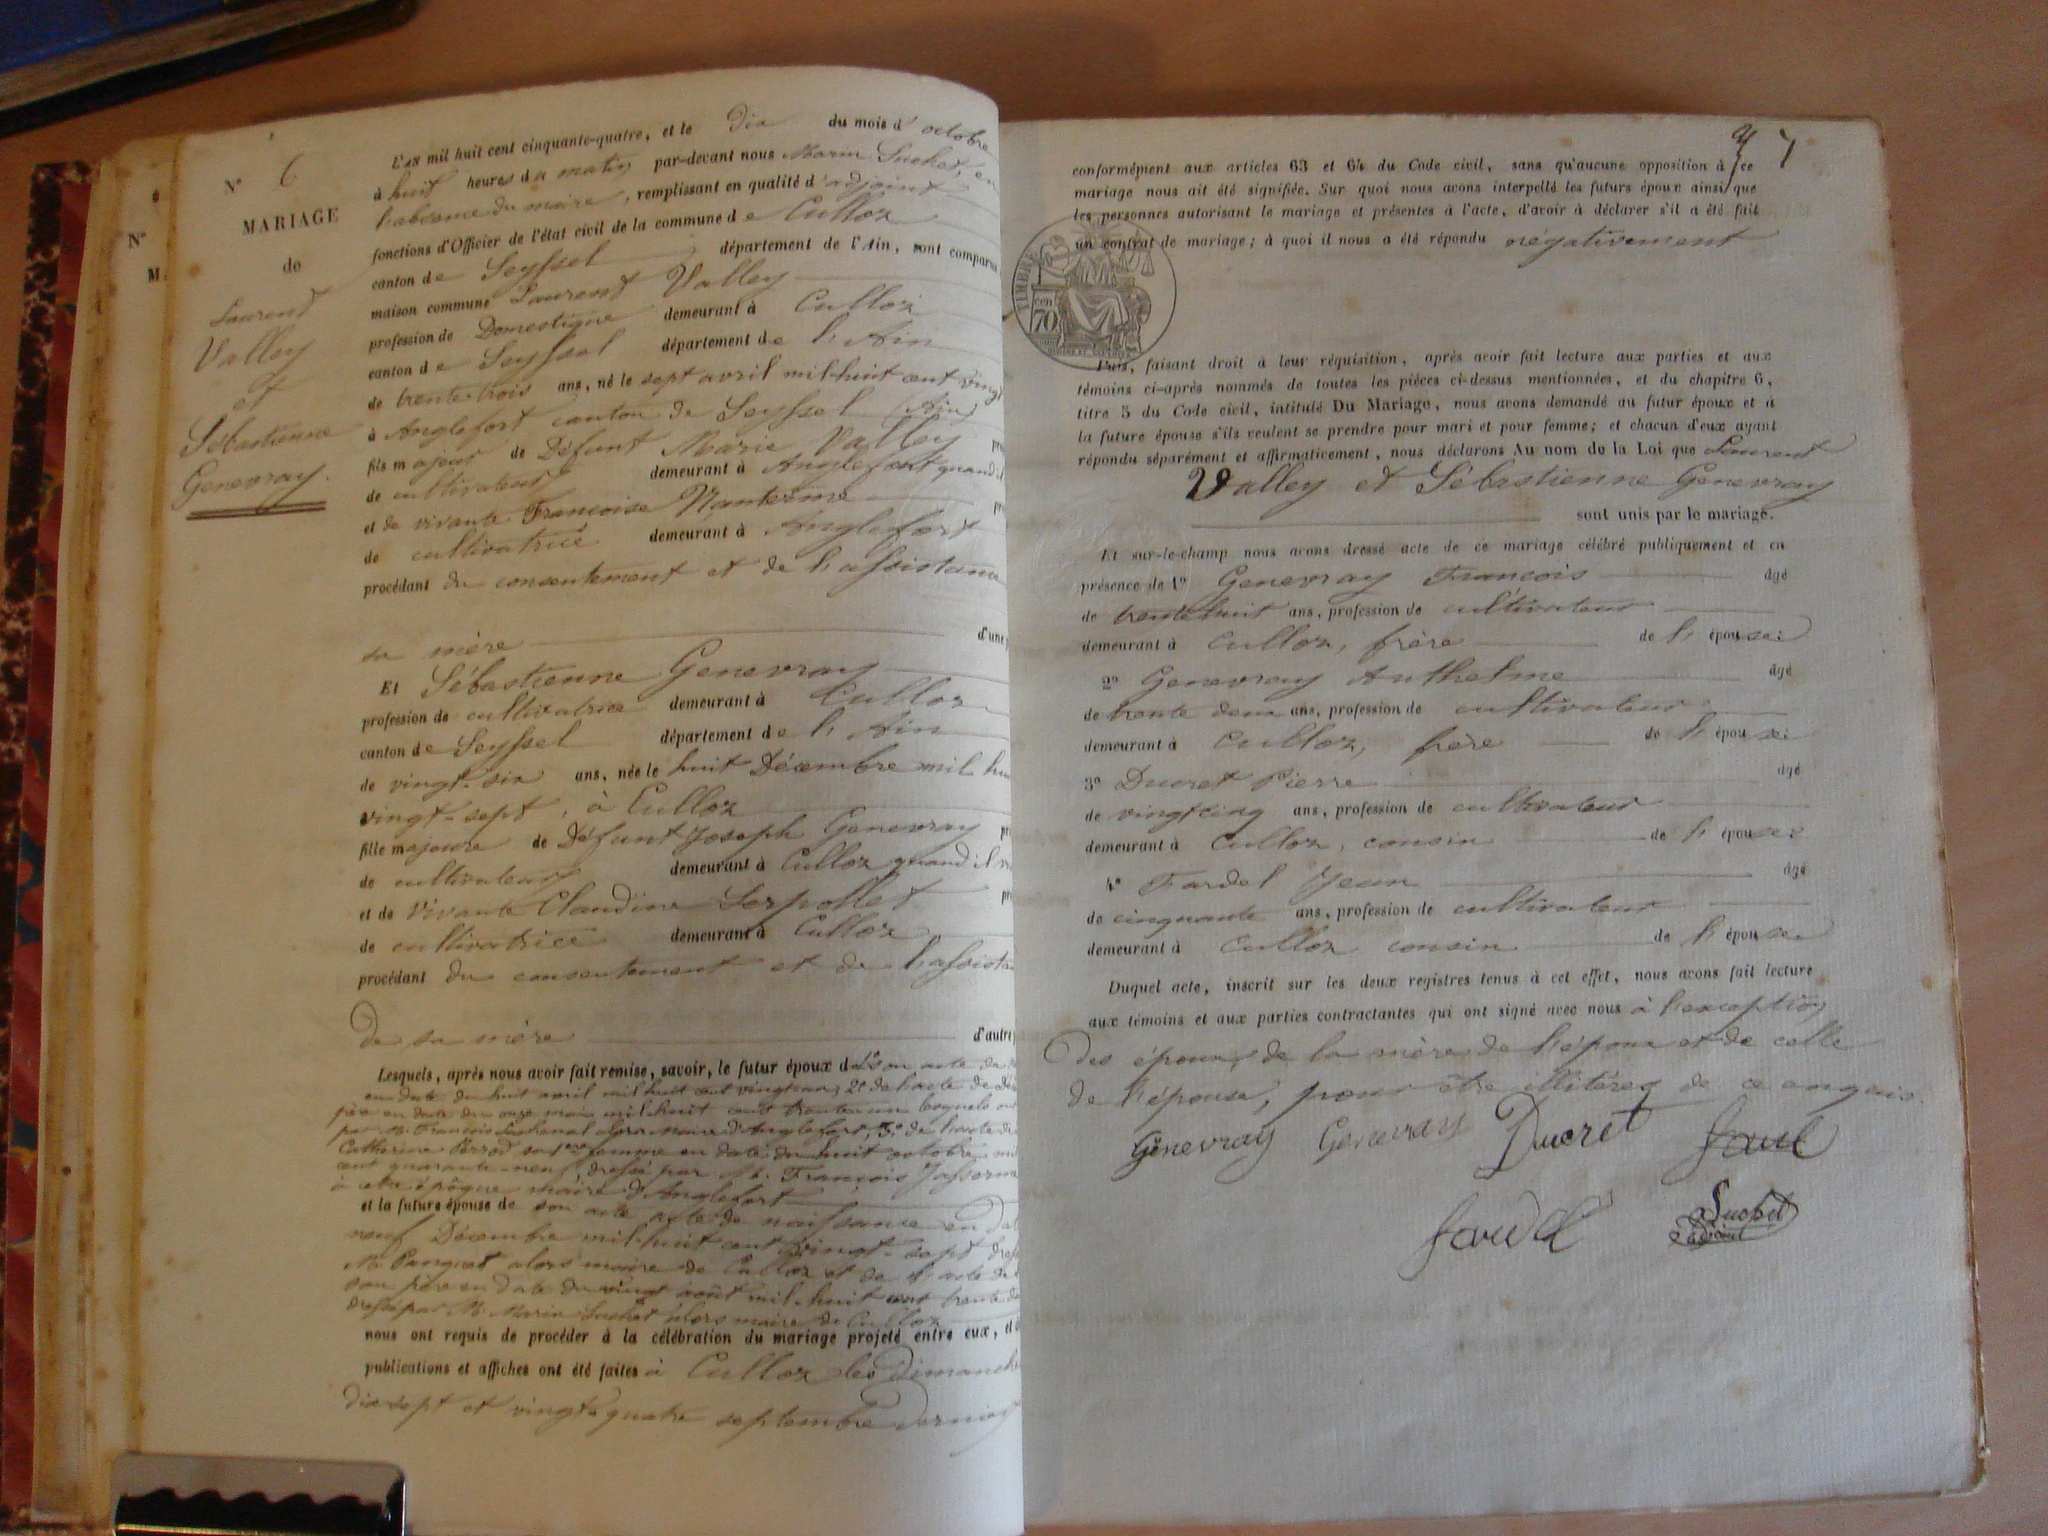 N° 6
MARIAGE
de
Laurent
Valley
et
Sébastienne
Genevray.
N°
M.
L'AN mil huit cent cinquante-quatre, et le Dix du mois d'octobre
à huit heures du matin par-devant nous Marin Suchet, en
l'absence du maire, remplissant en qualité d'adjoint
fonctions d'Officier de l'état civil de la commune de Culloz
canton de Seyssel département de l'Ain, sont comparus
maison commune Laurent Valley
profession de Domestique demeurant à Culloz
canton de Seyssel département de l'Ain
de trente-trois ans, né le sept avril mil-huit cent vingt
à Anglefort canton de Seyssel (Ain)
fils majeur de Défunt Marie Valley
de cultivateur demeurant à Anglefort quand il
et de vivante Françoise Nanterme
de cultivatrice demeurant à Anglefort
procédant du consentement et de l'assistance
sa mère d'une
Et Sébastienne Genevray
profession de cultivatrice demeurant à Culloz
canton de Seyssel département de l'Ain
de vingt-six ans, née le huit Décembre mil hui
vingt-sept, à Culloz
fille majeure de Défunt Joseph Genevray
de cultivateur demeurant à Culloz quand il
et de Vivante Claudine Serpollet
de cultivatrice demeurant à Culloz
procédant du consentement et de l'assista
De sa mère d'autre
Lesquels, après nous avoir fait remise, savoir, le futur époux de 1° son acte de
en date du huit avril mil huit cent vingt un; 2° de l'acte de
père en date du onze mars mil-huit cent trente un lesquels
par M. François alors Maire d'Anglefort, 3° de l'acte de
Catherine Perrod sa 1ère femme en date du huit octobre
cent quarante-neuf, dressé par M. François
à cette époque maire d'Anglefort
et la future épouse de son acte acte de naissance en dat
neuf Décembre mil-huit cent vingt-sept
M. Panquet alors maire de Culloz et de l'acte de
son père en date du vingt août mil-huit cent trente
dressé par M. Marin Suchet alors maire de Culloz
nous ont requis de procéder à la célébration du mariage projeté entre eux, et
publications et affiches ont été faites à Culloz les Dimanche
dix-sept et vingt-quatre septembre dernier
7
conformément aux articles 63 et 64 du Code civil, sans qu'aucune opposition à ce
mariage nous ait été signifiée. Sur quoi nous avons interpellé les futurs époux ainsi que
les personnes autorisant le mariage et présentes à l'acte, d'avoir à déclarer s'il a été fait
un contrat de mariage; à quoi il nous a été répondu négativement
TIMBRE
70
CEN
Puis, faisant droit à leur réquisition, après avoir fait lecture aux parties et aux
témoins ci-après nommés de toutes les pièces ci-dessus mentionnées, et du chapitre 6,
titre 5 du Code civil, intitulé Du Mariage, nous avons demandé au futur époux et à
la future épouse s'ils veulent se prendre pour mari et pour femme; et chacun d'eux ayant
répondu séparément et affirmativement, nous déclarons Au nom de la Loi que Laurent
Valley et Sébastienne Genevray
sont unis par le mariage.
Et sur-le-champ nous avons dressé acte de ce mariage célébré publiquement et en
présence de 1° Genevray François âgé
de trente huit ans, profession de cultivateur
demeurant à Culloz, frère de l'épouse:
2° Genevray Anthelme âgé
de trente deux ans, profession de cultivateur
demeurant à Culloz, frère de l'épouse:
3° Ducret Pierre âgé
de vingt cinq ans, profession de cultivateur
demeurant à Culloz, cousin de l'épouse:
4° Fardel Jean âgé
de cinquante ans, profession de cultivateur
demeurant à Culloz cousin de l'épouse.
Duquel acte, inscrit sur les deux registres tenus à cet effet, nous avons fait lecture
aux témoins et aux parties contractantes qui ont signé avec nous à l'exception
des époux, de la mère de l'époux et de celle
de l'épouse, pour être illitérés de ce enquis.
Genevray Genevray Ducret
Suchet
adjoint